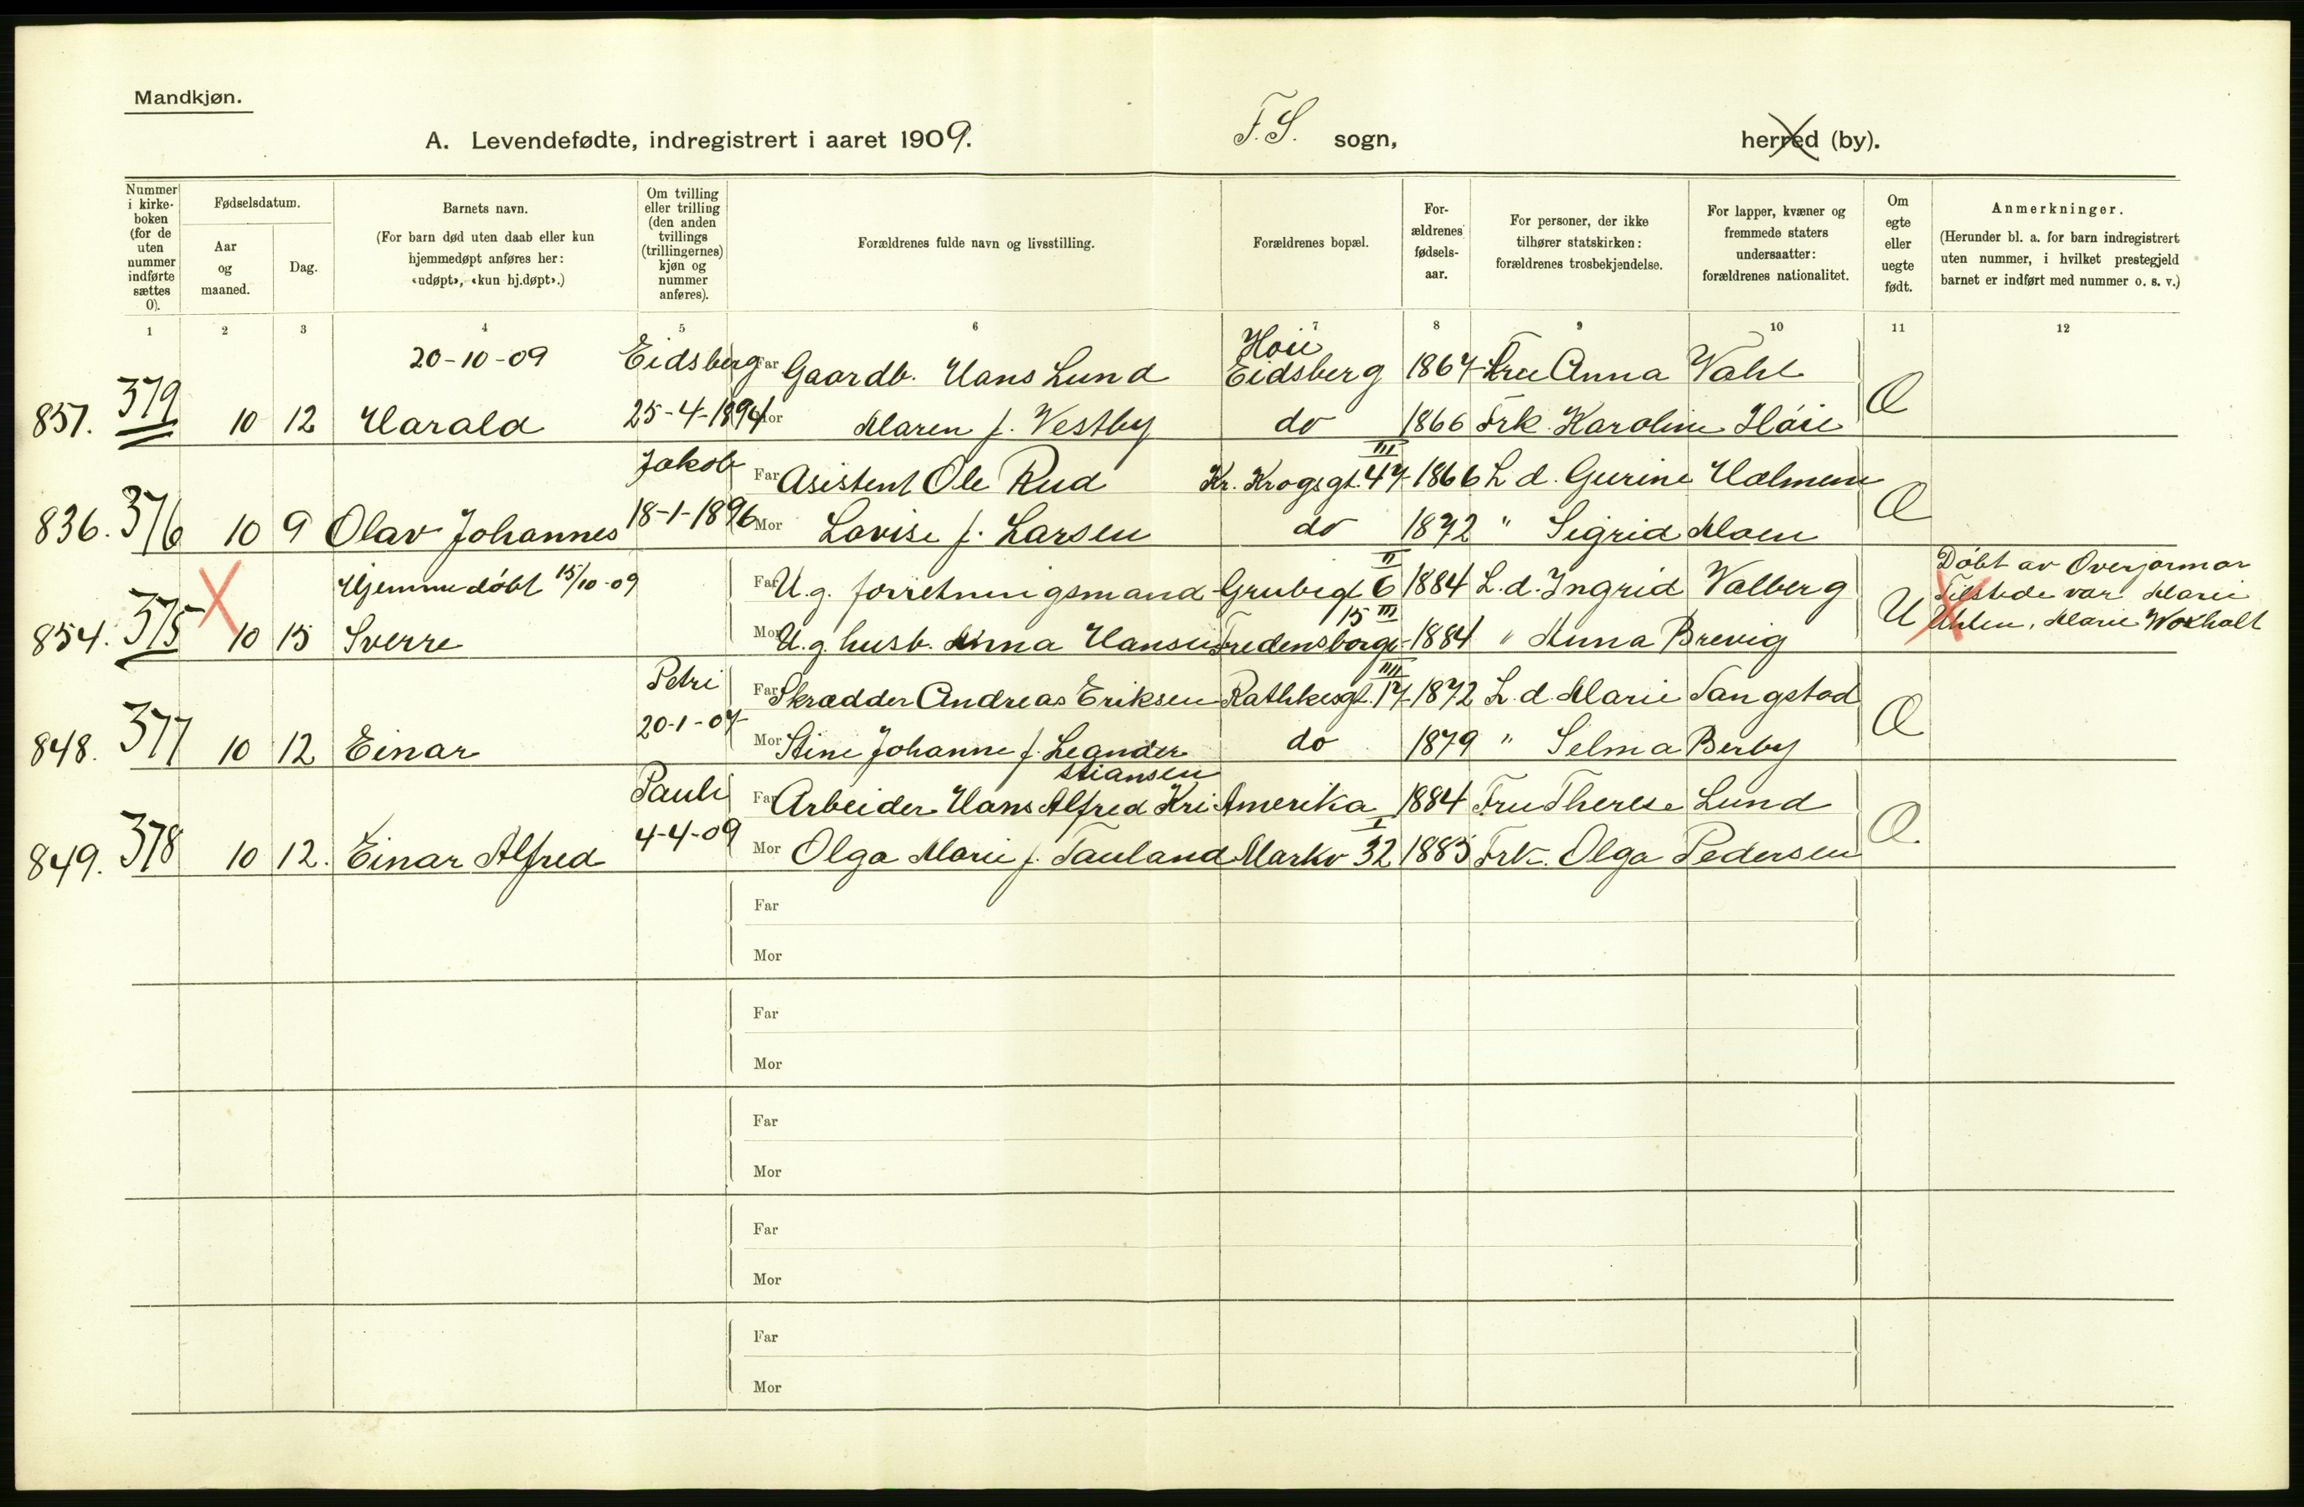 Mandkjøn.
A. Levendefødte, indregistrert i aaret 1909. F. S. sogn, herred (by).
Nummer i kirkeboken (for de uten nummer indførte sættes 0).
Fødselsdatum.
Aar og maaned.
Dag.
Barnets navn.
(For barn død uten daab eller kun hjemmedøpt anføres her: «udøpt», «kun hj.døpt».)
Om tvilling eller trilling (den anden tvillings (trillingernes) kjøn og nummer anføres).
Forældrenes fulde navn og livsstilling.
Forældrenes bopæl.
Forældrenes fødselsaar.
For personer, der ikke tilhører statskirken: forældrenes trosbekjendelse.
For lapper, kvæner og fremmede staters undersaatter: forældrenes nationalitet.
Om egte eller uegte født.
Anmerkninger.
(Herunder bl. a. for barn indregistrert uten nummer, i hvilket prestegjeld barnet er indført med nummer o. s. v.)
1 2 3 4 5 6 7 8 9 10 11 12
20-10-09 Eidsberg Far Gaardb. Hans Lund Høii Eidsberg 1867 Fru Anna Wahl
851. 379 10 12 Harald 25-4-1894 Mor Maren f. Vestby do 1866 Frk. Karoline Høie Æ
Jakob Far Asistent Ole Rud Kr. Krogsgt. 47 III 1866 L. d. Gurine Holmen
836. 376 10 9 Olav Johannes 18-1-1896 Mor Lovise f. Larsen do 1872 " Sigrid Moen Æ
Hjemmedöbt 15/10-09 Far U. g. forretningsmand Grubegt 6 II 1884 L. d. Ingrid Valberg
854. 375 10 15 Sverre Mor U. g. husb. Anna Hansen Fredensborgv 15 III 1884 " Anna Brevig U
Döbt av Overjormor
Tilstede var Marie
Uhlen, Marie Woxholt
Petri Far Skrædder Andreas Eriksen Rathkesgt. 17 III 1872 L. d. Marie Tangstad
848. 377 10 12 Einar 20-1-07 Mor Stine Johanne f. Leander do 1879 " Selma Berby Æ
Pauli Far Arbeider Hans Alfred Kristiansen Amerika 1884 Fru Therese Lund
849. 378 10 12. Einar Alfred 4-4-09 Mor Olga Marie f. Tauland Markv 32 I 1883 Frk. Olga Pedersen Æ.
Far
Mor
Far
Mor
Far
Mor
Far
Mor
Far
Mor